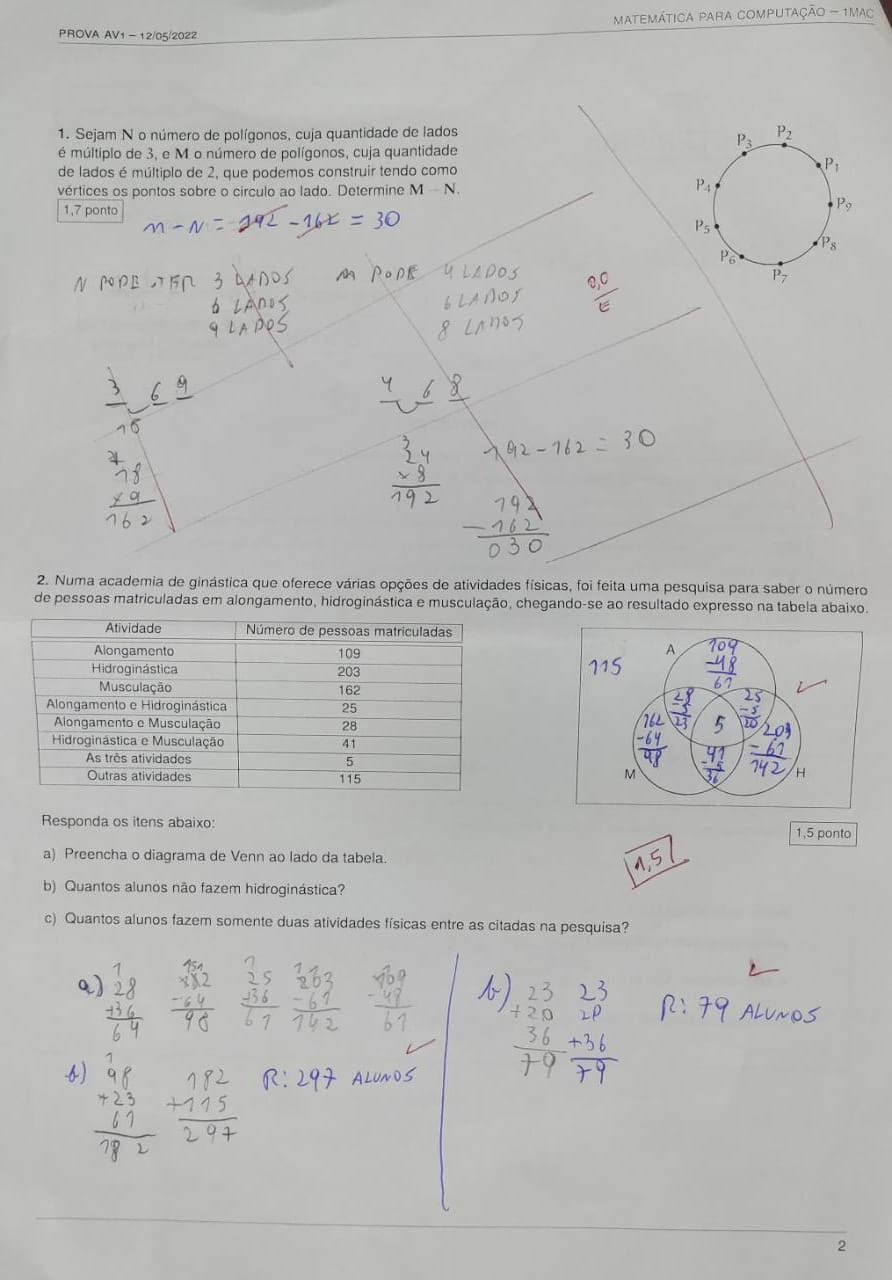 MATEMÁTICA PARA COMPUTAÇÃO – 1MAC
PROVA AV1 – 12/05/2022
1. Sejam N o número de polígonos, cuja quantidade de lados
é múltiplo de 3, e M o número de polígonos, cuja quantidade
de lados é múltiplo de 2, que podemos construir tendo como
vértices os pontos sobre o circulo ao lado. Determine M – N.
1,7 ponto
M - N = 192 - 162 = 30
P1
P2
P3
P4
P5
P6
P7
P8
P9
N PODE TER 3 LADOS
6 LADOS
9 LADOS
M PODE 4 LADOS
6 LADOS
8 LADOS
0,0
E
3 6 9
18
18
x 9
162
4 6 8
24
x 8
192
192 - 162 = 30
192
- 162
030
2. Numa academia de ginástica que oferece várias opções de atividades físicas, foi feita uma pesquisa para saber o número
de pessoas matriculadas em alongamento, hidroginástica e musculação, chegando-se ao resultado expresso na tabela abaixo.
Atividade Número de pessoas matriculadas
Alongamento 109
Hidroginástica 203
Musculação 162
Alongamento e Hidroginástica 25
Alongamento e Musculação 28
Hidroginástica e Musculação 41
As três atividades 5
Outras atividades 115
115
A
109
-48
61
28
-5
23
25
-5
20
5
162
-64
98
203
-61
142
41
-5
36
M
H
Responda os itens abaixo:
1,5 ponto
a) Preencha o diagrama de Venn ao lado da tabela.
1,5
b) Quantos alunos não fazem hidroginástica?
c) Quantos alunos fazem somente duas atividades físicas entre as citadas na pesquisa?
a) 28
+36
64
-64
98
25
+36
61
203
-61
142
109
-48
61
b) 98
+23
61
182
182
+115
297
R: 297 ALUNOS
b) 23
+20
36
79
23
20
+36
79
R: 79 ALUNOS
2